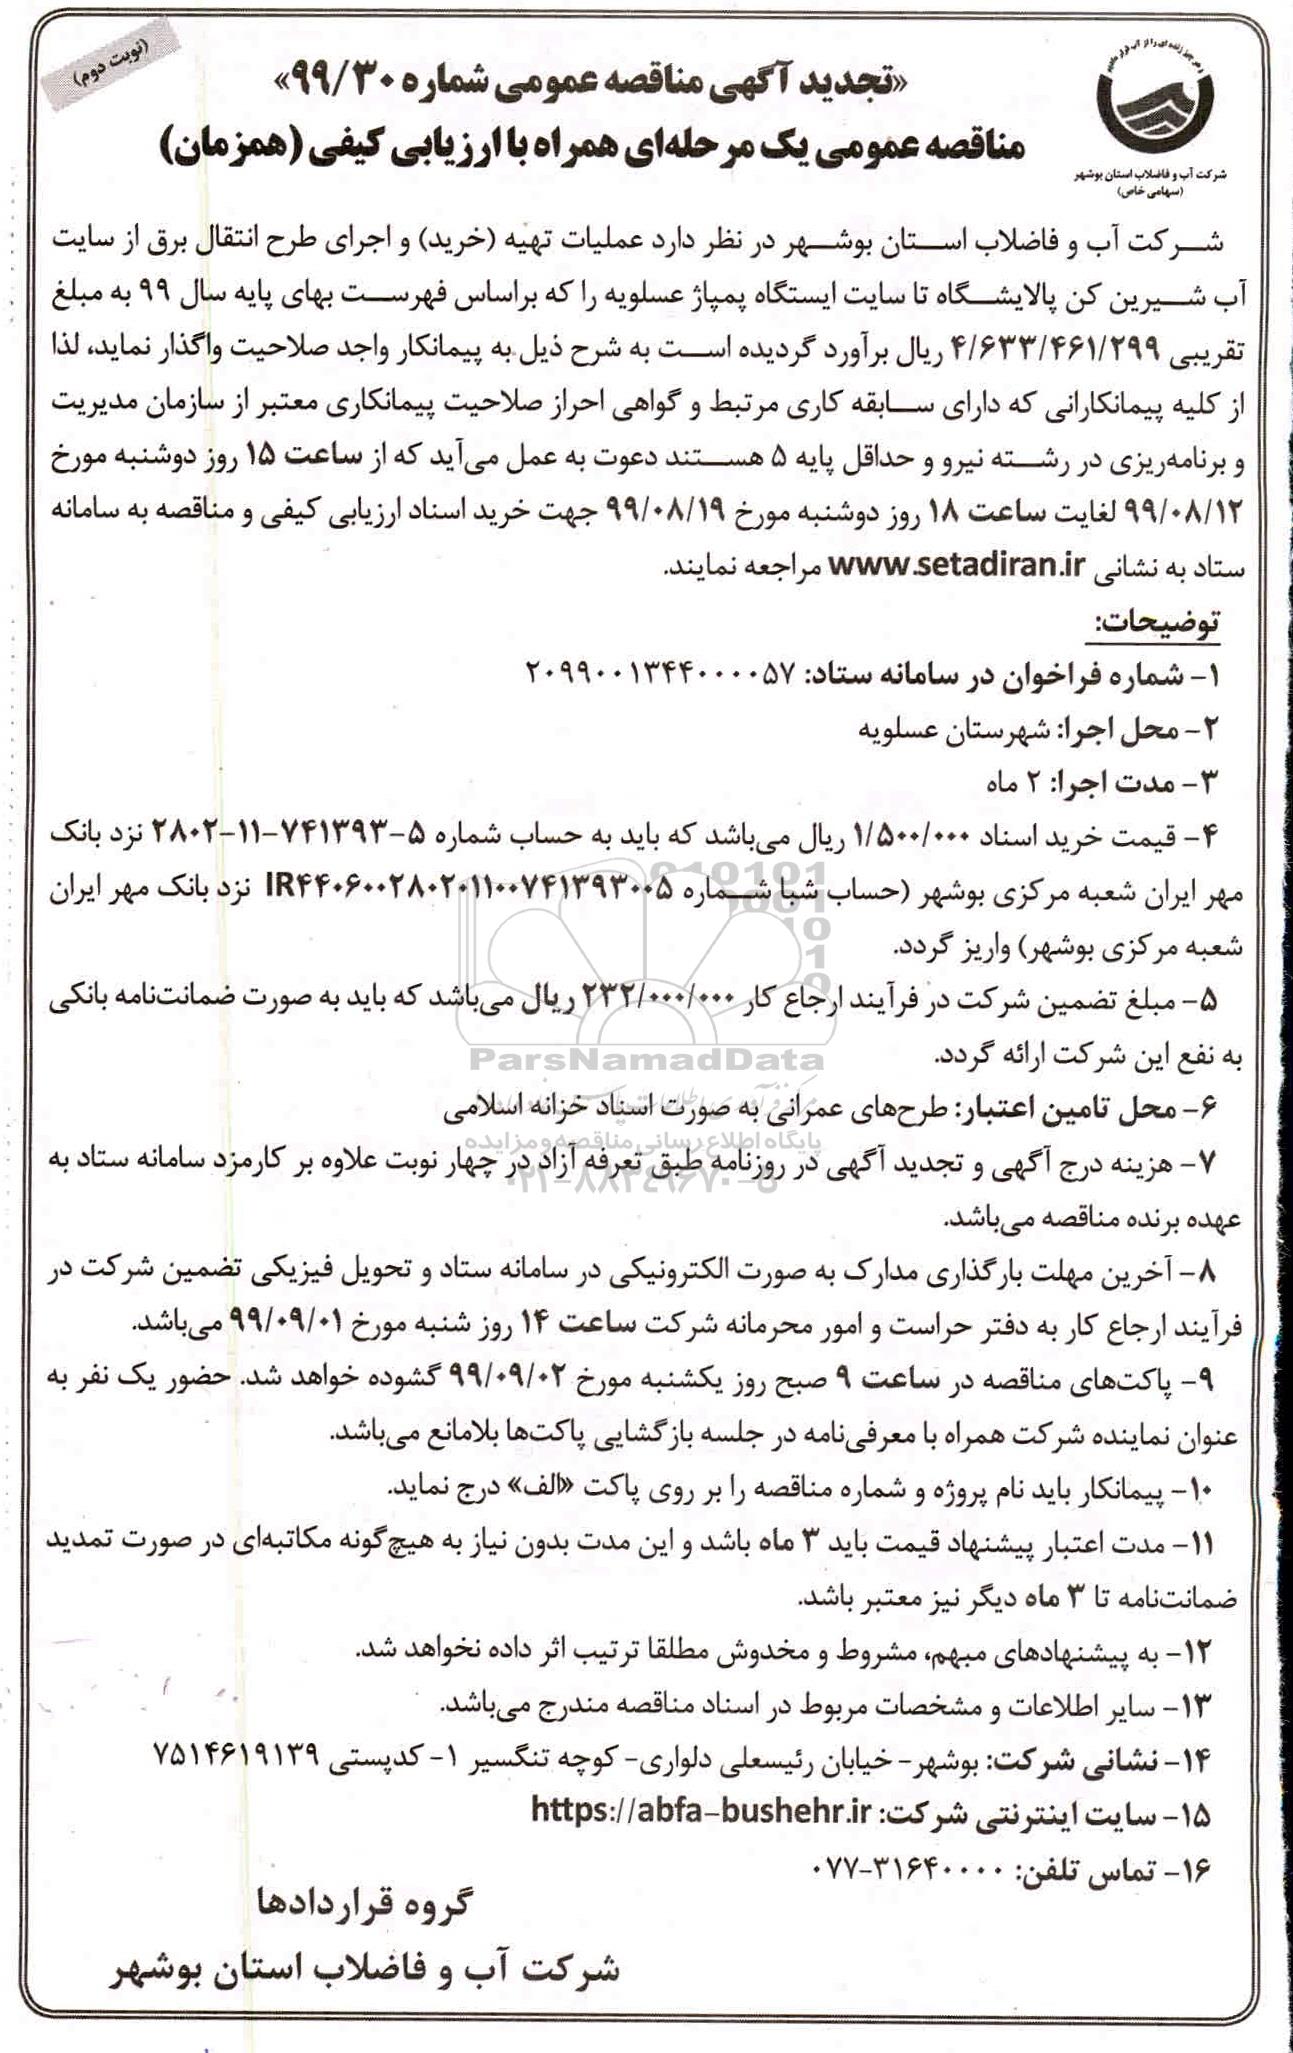 (نوبت دوم)
شرکت آب و فاضلاب استان بوشهر
(سهامی خاص)
«تجدید آگهی مناقصه عمومی شماره ۹۹/۳۰»
مناقصه عمومی یک مرحله‌ای همراه با ارزیابی کیفی (همزمان)
شرکت آب و فاضلاب استان بوشهر در نظر دارد عملیات تهیه (خرید) و اجرای طرح انتقال برق از سایت
آب شیرین کن پالایشگاه تا سایت ایستگاه پمپاژ عسلویه را که براساس فهرست بهای پایه سال ۹۹ به مبلغ
تقریبی ۴/۶۳۳/۴۶۱/۲۹۹ ریال برآورد گردیده است به شرح ذیل به پیمانکار واجد صلاحیت واگذار نماید، لذا
از کلیه پیمانکارانی که دارای سابقه کاری مرتبط و گواهی احراز صلاحیت پیمانکاری معتبر از سازمان مدیریت
و برنامه‌ریزی در رشته نیرو و حداقل پایه ۵ هستند دعوت به عمل می‌آید که از ساعت ۱۵ روز دوشنبه مورخ
۹۹/۰۸/۱۲ لغایت ساعت ۱۸ روز دوشنبه مورخ ۹۹/۰۸/۱۹ جهت خرید اسناد ارزیابی کیفی و مناقصه به سامانه
ستاد به نشانی www.setadiran.ir مراجعه نمایند.
توضیحات:
۱- شماره فراخوان در سامانه ستاد: ۲۰۹۹۰۰۱۳۴۴۰۰۰۰۵۷
۲- محل اجرا: شهرستان عسلویه
۳- مدت اجرا: ۲ ماه
۴- قیمت خرید اسناد ۱/۵۰۰/۰۰۰ ریال می‌باشد که باید به حساب شماره ۵-۷۴۱۳۹۳-۱۱-۲۸۰۲ نزد بانک
مهر ایران شعبه مرکزی بوشهر (حساب شبا شماره IR۴۴۰۶۰۰۲۸۰۲۰۱۱۰۰۷۴۱۳۹۳۰۰۵ نزد بانک مهر ایران
شعبه مرکزی بوشهر) واریز گردد.
۵- مبلغ تضمین شرکت در فرآیند ارجاع کار ۲۳۲/۰۰۰/۰۰۰ ریال می‌باشد که باید به صورت ضمانت‌نامه بانکی
به نفع این شرکت ارائه گردد.
ParsNamadData
۶- محل تامین اعتبار: طرح‌های عمرانی به صورت اسناد خزانه اسلامی
پایگاه اطلاع رسانی مناقصه و مزایده
۷- هزینه درج آگهی و تجدید آگهی در روزنامه طبق تعرفه آزاد در چهار نوبت علاوه بر کارمزد سامانه ستاد به
۰۲۱-۸۸۳۴۹۶۷۰-۵
عهده برنده مناقصه می‌باشد.
۸- آخرین مهلت بارگذاری مدارک به صورت الکترونیکی در سامانه ستاد و تحویل فیزیکی تضمین شرکت در
فرآیند ارجاع کار به دفتر حراست و امور محرمانه شرکت ساعت ۱۴ روز شنبه مورخ ۹۹/۰۹/۰۱ می‌باشد.
۹- پاکت‌های مناقصه در ساعت ۹ صبح روز یکشنبه مورخ ۹۹/۰۹/۰۲ گشوده خواهد شد. حضور یک نفر به
عنوان نماینده شرکت همراه با معرفی‌نامه در جلسه بازگشایی پاکت‌ها بلامانع می‌باشد.
۱۰- پیمانکار باید نام پروژه و شماره مناقصه را بر روی پاکت «الف» درج نماید.
۱۱- مدت اعتبار پیشنهاد قیمت باید ۳ ماه باشد و این مدت بدون نیاز به هیچ‌گونه مکاتبه‌ای در صورت تمدید
ضمانت‌نامه تا ۳ ماه دیگر نیز معتبر باشد.
۱۲- به پیشنهادهای مبهم، مشروط و مخدوش مطلقا ترتیب اثر داده نخواهد شد.
۱۳- سایر اطلاعات و مشخصات مربوط در اسناد مناقصه مندرج می‌باشد.
۱۴- نشانی شرکت: بوشهر- خیابان رئیسعلی دلواری- کوچه تنگسیر ۱- کدپستی ۷۵۱۴۶۱۹۱۳۹
۱۵- سایت اینترنتی شرکت: https://abfa-bushehr.ir
۱۶- تماس تلفن: ۳۱۶۴۰۰۰۰-۰۷۷
گروه قراردادها
شرکت آب و فاضلاب استان بوشهر